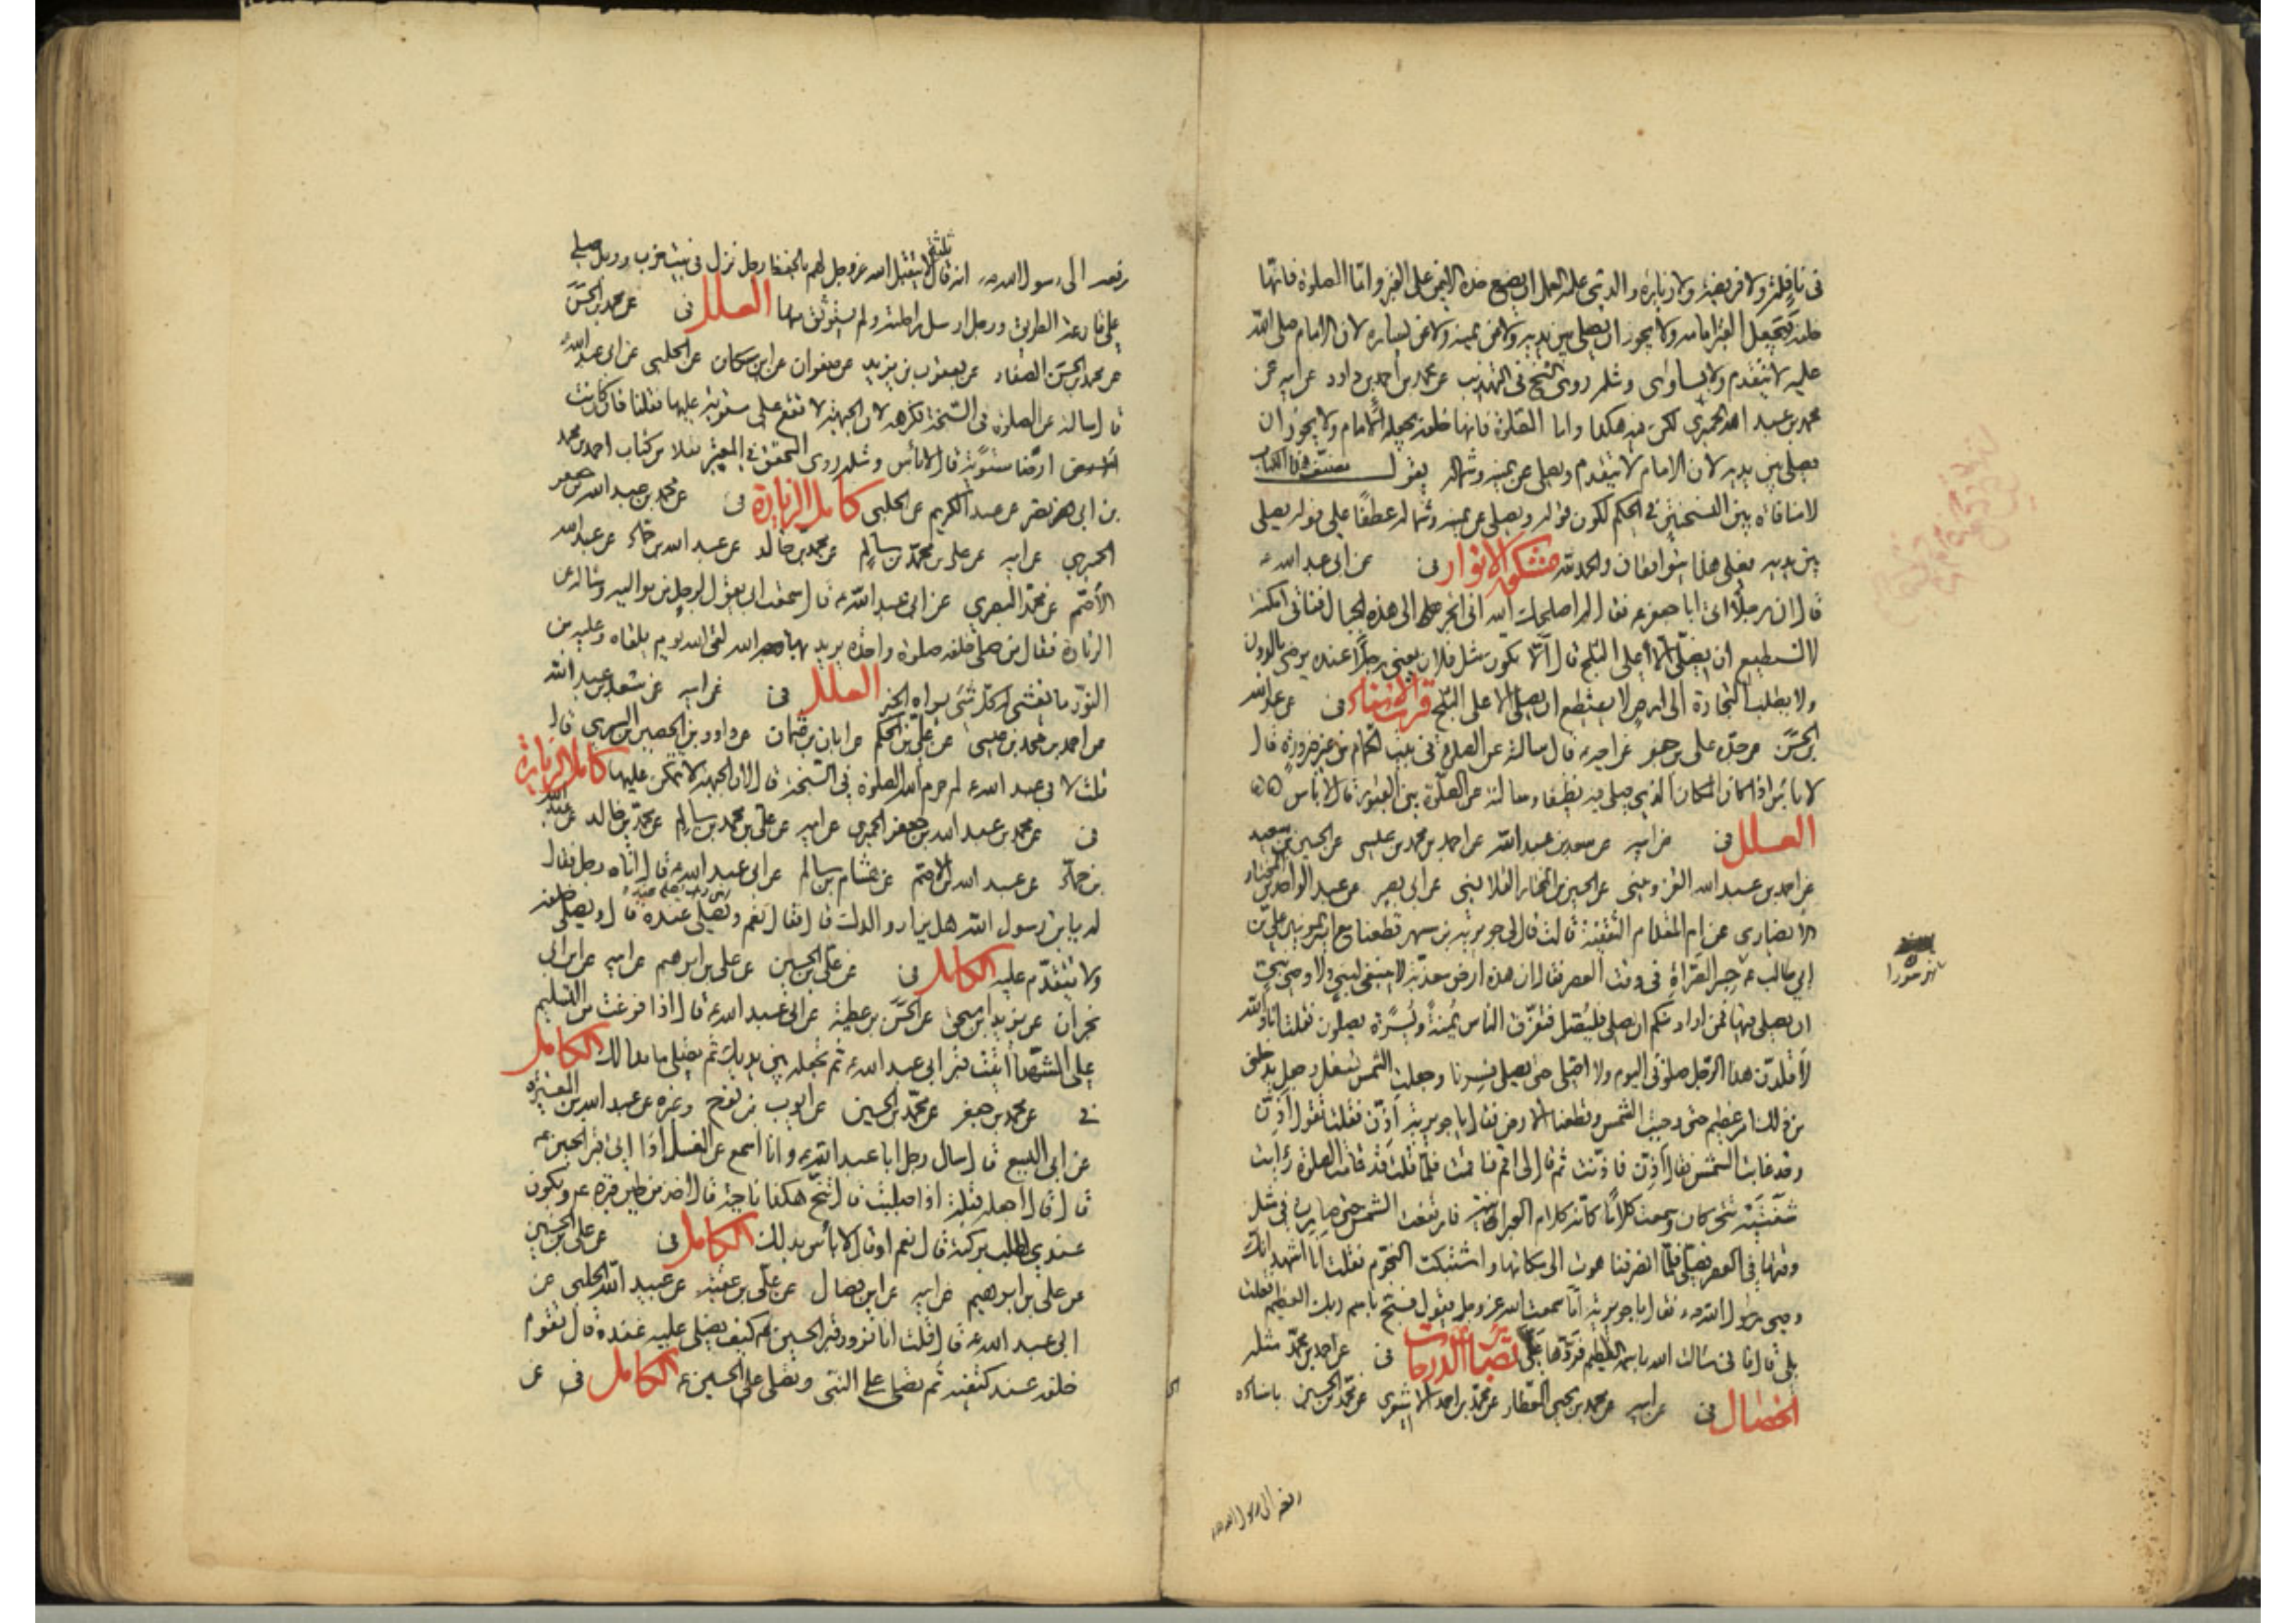 فى نافلة ولا فريضة ولا زيارة والذى عليه العمل ان يضع خده الايمن على القبر واما الصلوة فانها
خلفه يجعل القبر امامه ولا يجوز ان يصلى بين يديه ولا عن يمينه ولا عن يساره لان الامام صلى الله
عليه لا يتقدم ولا يساوى ومثله روى الشيخ فى التهذيب عن محمد بن احمد بن داود عن ابيه عن
محمد بن عبد الله الحميرى لكن فيه هكذا واما الصلوة فانها خلفه يجعله الامام ولا يجوز ان
يصلى بين يديه لان الامام لا يتقدم ويصلى عن يمينه وشماله يقول مصنف هذا الكتاب
لا منافاة بين النسختين فى الحكم لكون قوله ويصلى عن يمينه وشماله عطفًا على قوله يصلى
بين يديه فعلى هذا متوافقان والحمد لله مشكوة الانوار فى عن ابى عبد الله ع
قال ان رجلا اتى ابا جعفر ع فقال له اصلحك الله انى اتجر الى هذه الجبال فناتى امكنة
لا نستطيع ان نصلى الا على الثلج قال الا تكون مثل فلان يعنى رجلا عنده يرضى بالدون
ولا يطلب التجارة الى ارض لا يستطيع ان يصلى الا على الثلج قرب الاسناد فى عن عبد الله
بن الحسن عن جده على بن جعفر عن اخيه قال سالته عن الصلوة فى بيت الحمام من غير ضرورة قال
لا باس اذا كان المكان الذى صلى فيه نظيفا وسالته عن الصلوة بين القبور قال لا باس
العلل فى عن ابيه عن سعد بن عبد الله عن احمد بن محمد بن عيسى عن الحسين بن سعيد
عن احمد بن عبد الله القزوينى عن الحسين بن المختار القلانسى عن ابى بصير عن عبد الواحد بن المختار
الانصارى عن ام المقدام الثقفية قالت قال لى جويرية بن مسهر قطعنا مع امير المومنين على بن
ابى طالب ع جسر الصراة فى وقت العصر فقال ان هذه ارض معذبة لا ينبغى لنبى ولا وصى نبى
ان يصلى فيها فمن اراد منكم ان يصلى فليصل فتفرق الناس يمنة ويسرة يصلون فقلت انا والله
لاقلدن هذا الرجل صلوتى اليوم ولا اصلى حتى يصلى فسرنا وجعلت الشمس تسفل وجعل يدخلنى
من ذلك امر عظيم حتى وجبت الشمس وقطعنا الارض فقال يا جويرية اذن فقلت تقول اذن
وقد غابت الشمس فقال اذن فاذنت ثم قال لى اقم فاقمت فلما قلت قد قامت الصلوة رايت
شفتيه تتحركان وسمعت كلاما كانه كلام العبرانية فارتفعت الشمس حتى صارت فى مثل
وقتها فى العصر فصلى فلما انصرفنا هوت الى مكانها واشتبكت النجوم فقلت انا اشهد انك
وصى رسول الله ص فقال يا جويرية اما سمعت الله عز وجل يقول فسبح باسم ربك العظيم فقلت
بلى قال فانى سالت الله باسمه العظيم فردها على بصائر الدرجات فى عن احمد بن محمد مثله
الخصال فى عن ابيه عن محمد بن يحيى العطار عن محمد بن احمد الاشعرى عن محمد بن الحسين باسناده
رفعه الى رسول الله ص
رفعه الى رسول الله ص انه قال ثلثة لا يتقبل الله عز وجل لهم بالحفظ رجل نزل فى بيت خرب ورجل صلى
على قارعة الطريق ورجل ارسل راحلته ولم يستوثق منها العلل فى عن محمد بن الحسن
عن محمد بن الحسن الصفار عن يعقوب بن يزيد عن صفوان عن ابن مسكان عن الحلبى عن ابى عبد الله ع
قال سالته عن الصلوة فى السبخة فكرهه لان الجبهة لا تقع على مستوية عليها فقلنا فان كانت
ارضا مستوية قال لا باس ومثله روى المحقق فى المعتبر نقلا من كتاب احمد بن محمد
بن ابى نصر عن عبد الكريم عن الحلبى كامل الزيارة فى عن محمد بن عبد الله بن جعفر
الحميرى عن ابيه عن على بن محمد بن سالم عن محمد بن خالد عن عبد الله بن حماد عن عبد الله
الاصم عن محمد البصرى عن ابى عبد الله ع قال سمعت ابى يقول لرجل من مواليه وساله عن
الزيارة فقال من صلى خلفه صلوة واحدة يريد بها الله لقى الله يوم يلقاه وعليه من
النور ما يغشى له كل شئ يراه الخبر العلل فى عن ابيه عن سعد بن عبد الله
عن احمد بن محمد بن عيسى عن على بن الحكم عن ابان بن عثمان عن داود بن الحصين بن السرى قال
قلت لابى عبد الله ع لم حرم الله الصلوة فى السبخة قال لان الجبهة لا تتمكن عليها كامل الزيارة
فى عن محمد بن عبد الله بن جعفر الحميرى عن ابيه عن على بن محمد بن سالم عن محمد بن خالد عن عبد الله
بن حماد عن عبد الله الاصم عن هشام بن سالم عن ابى عبد الله ع قال اتاه رجل فقال
له يا بن رسول الله هل يزار والدك قال فقال نعم ونصلى عنده قال ويصلى خلفه
ولا يتقدم عليه الكامل فى عن على بن الحسين عن على بن ابرهيم عن ابيه عن ابن ابى
نجران عن يزيد بن اسحق عن الحسن بن عطية عن ابى عبد الله ع قال اذا فرغت من التسليم
على الشهداء اتيت قبر ابى عبد الله ع ثم تجعله بين يديك ثم تصلى ما بدا لك الكامل
فى عن محمد بن جعفر عن محمد بن الحسين عن ايوب بن نوح وغيره عن عبد الله بن المغيرة
عن ابى اليسع قال سال رجل ابا عبد الله ع وانا اسمع عن الغسل اذا اتى قبر الحسين ع
قال قال اجعله قبلة اذا صليت قال تنح هكذا ناحية قال اخذ من طين قبره ع ويكون
عندى اطلب بركته قال نعم او قال لا باس بذلك الكامل فى عن على بن الحسين
عن على بن ابرهيم عن ابيه عن ابن فضال عن على بن عقبة عن عبيد الله الحلبى عن
ابى عبد الله ع قال قلت انا نزور قبر الحسين ع كيف نصلى عليه عنده قال تقوم
خلفه عند كتفيه ثم تصلى على النبى وتصلى على الحسين ع الكامل فى عن